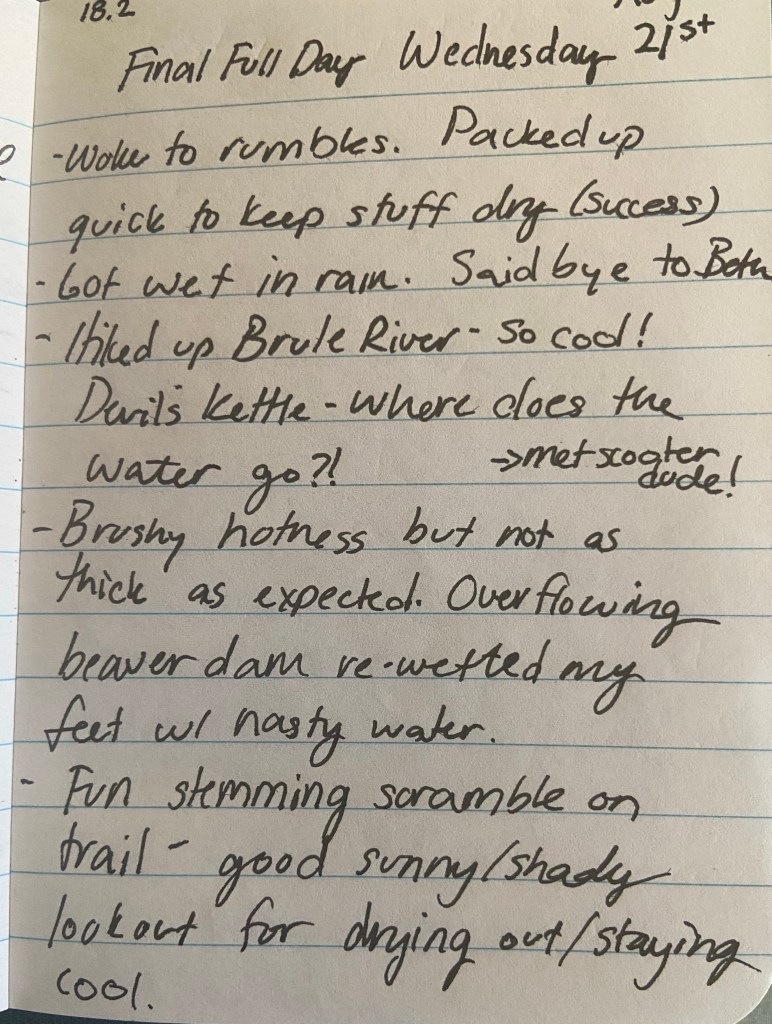 18.2
Final Full Day Wednesday 21st
- Woke to rumbles. Packed up
quick to keep stuff dry (success)
- Got wet in rain. Said bye to Beth
- Hiked up Brule River - so cool!
Devil's Kettle - where does the
water go?! → met scooter
dude!
- Brushy hotness but not as
thick as expected. Overflowing
beaver dam re-wetted my
feet w/ nasty water.
- Fun stemming scramble on
trail - good sunny/shady
lookout for drying out/staying
cool.